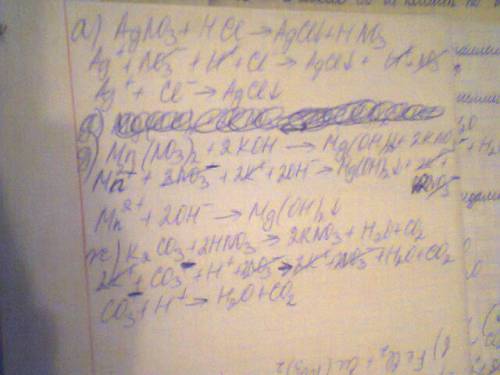 а) AgNO3 + HCl → AgCl↓ + HNO3
Ag⁺ + NO3⁻ + H⁺ + Cl⁻ → AgCl↓ + H⁺ + NO3⁻
Ag⁺ + Cl⁻ → AgCl↓
д) Mn(NO3)2 + 2KOH → Mg(OH)2↓ + 2KNO3
Mn²⁺ + 2NO3⁻ + 2K⁺ + 2OH⁻ → Mg(OH)2↓ + 2K⁺ +
2NO3⁻
Mn²⁺ + 2OH⁻ → Mg(OH)2↓
ж) K2CO3 + 2HNO3 → 2KNO3 + H2O + CO2
2K⁺ + CO3⁻ + H⁺ + 2NO3⁻ → 2K⁺ + 2NO3⁻ + H2O + CO2
CO3⁻ + H⁺ → H2O + CO2